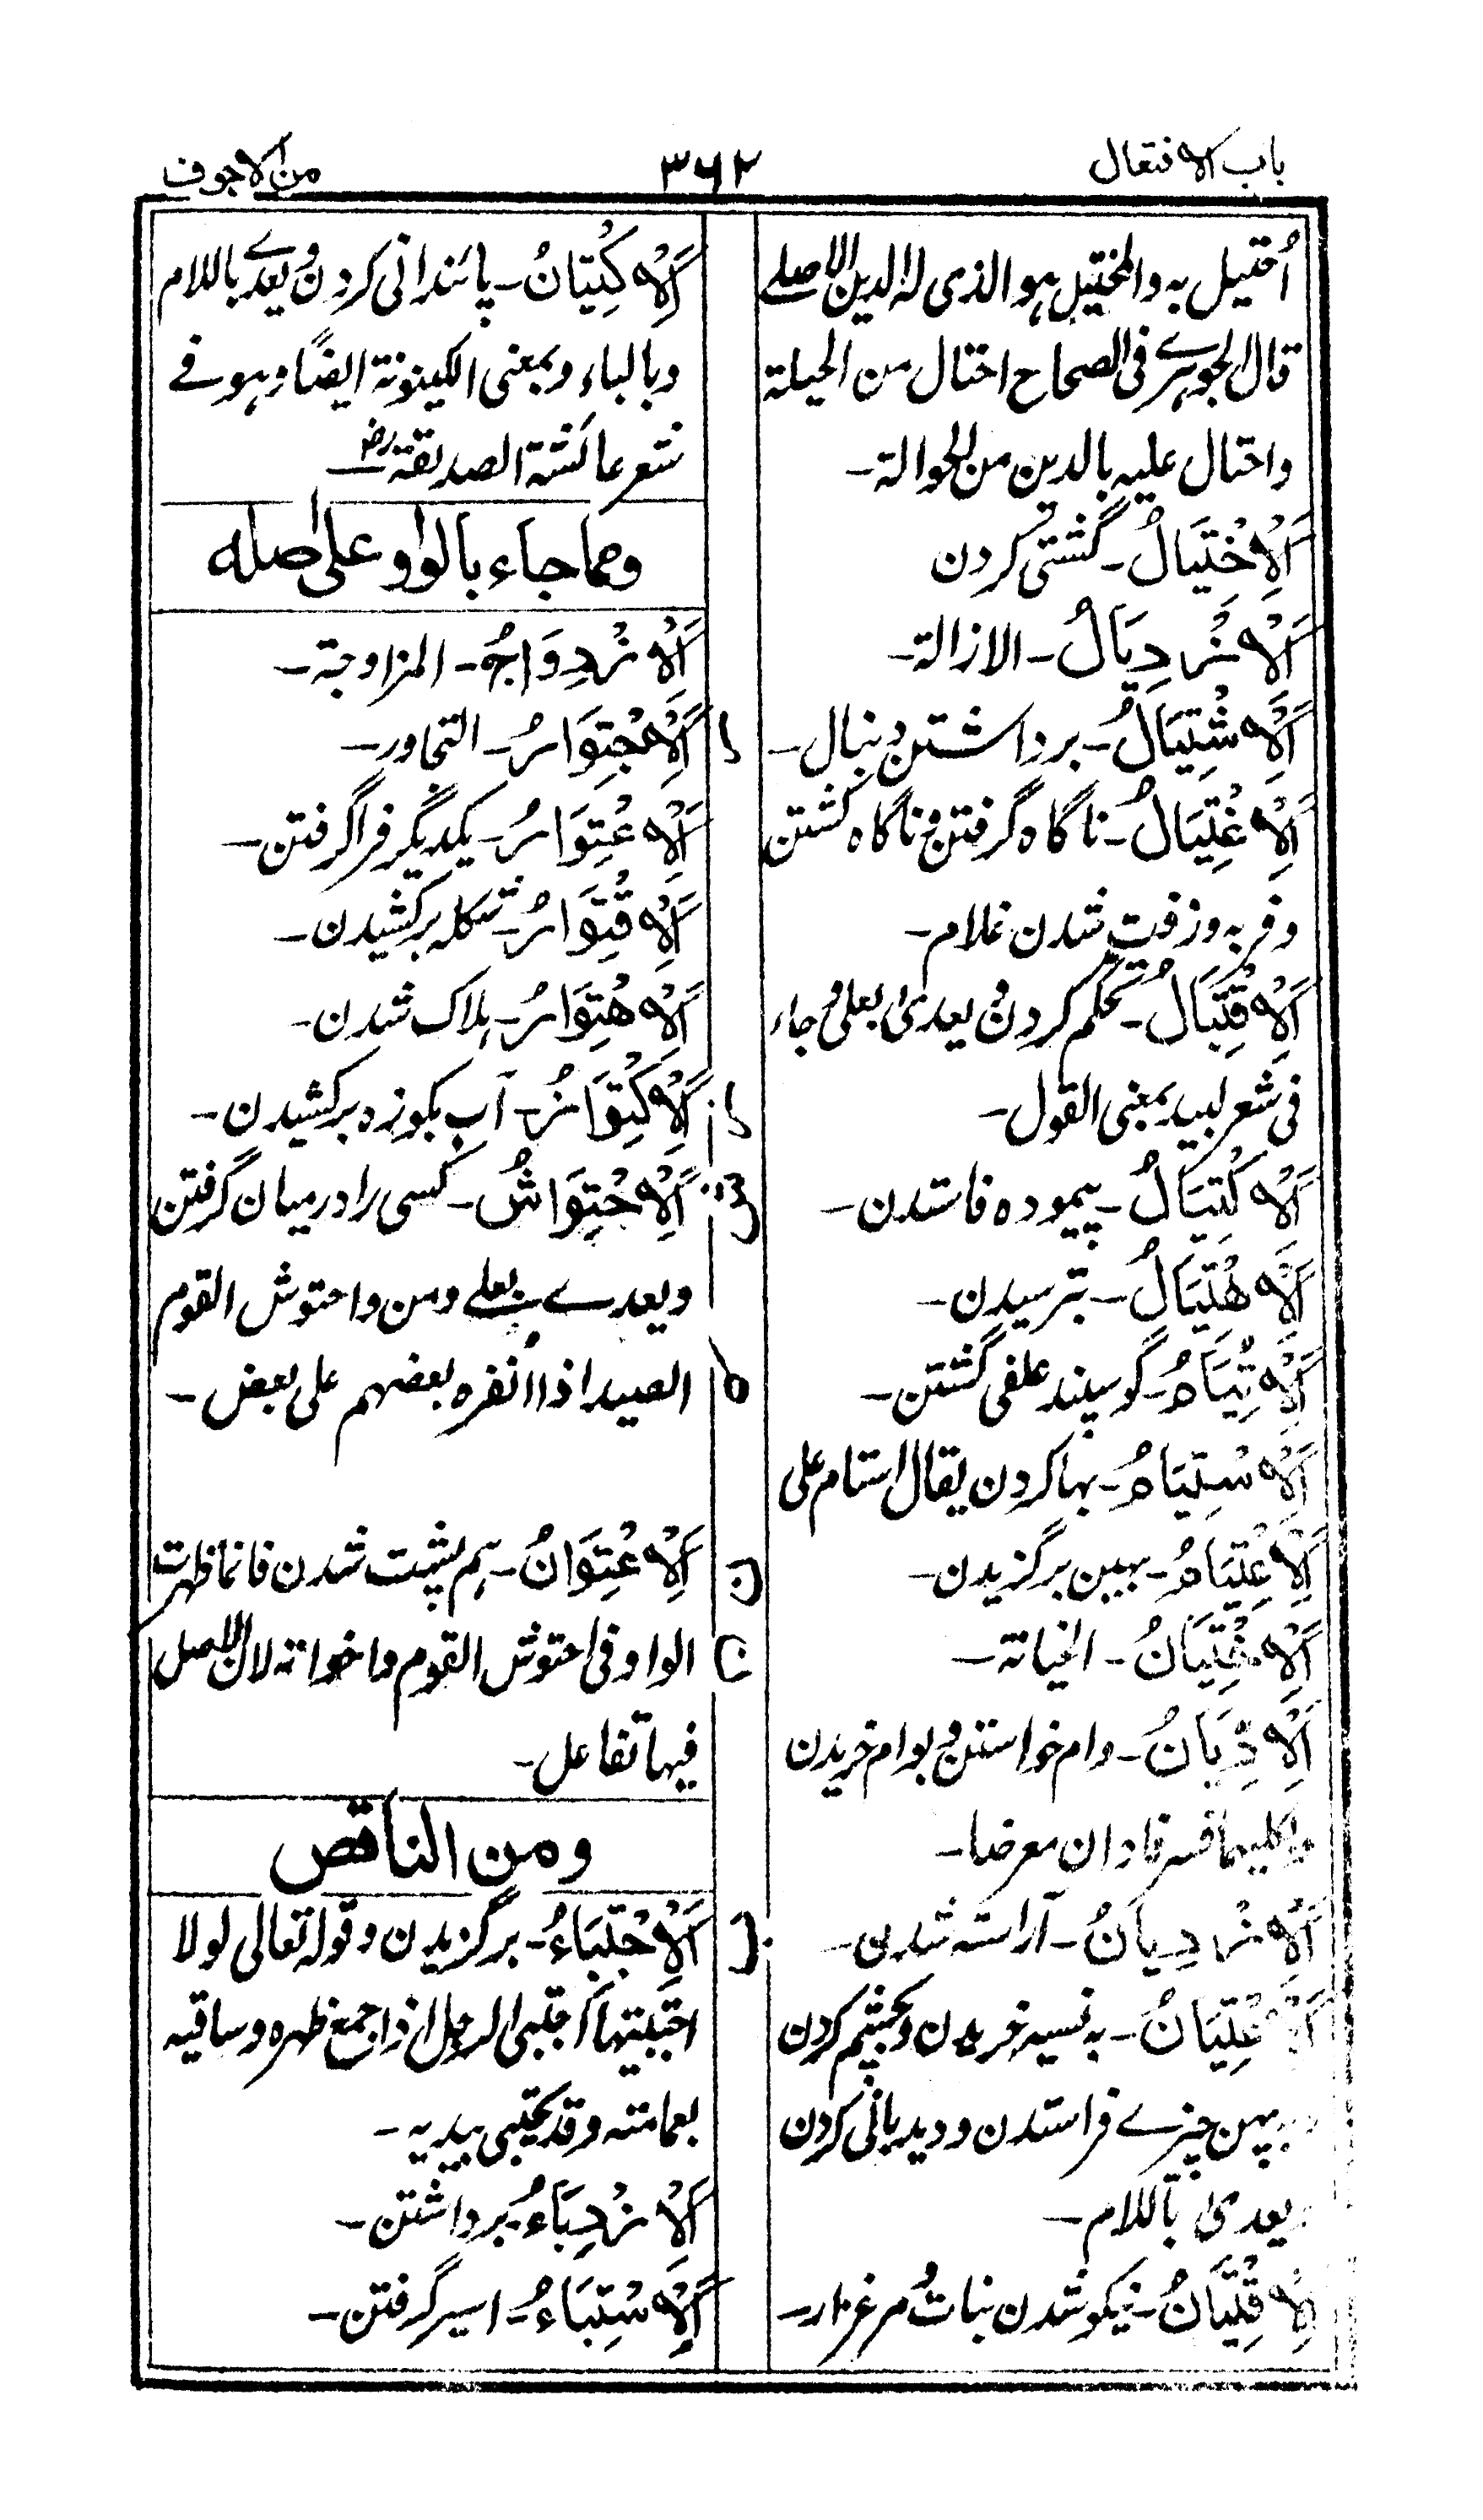 باب الافتعال
۳۶۲
من الاجوف
اُحتيل به والمختيل هو الذى له الدين الاصلے
قال الجوهرے فى الصحاح احتال من الحيلة
واحتال عليه بالدين من الحوالة۔
اَلْاِخْتِيَالُ۔ گشتى كردن
اَلْاِزْدِيَالُ۔ الازالة۔
اَلْاِشْتِيَالُ۔ برداشتن دنبال۔
اَلْاِغْتِيَالُ۔ ناگاه گرفتن و ناگاه كشتن
و فربه و زفت شدن غلام۔
اَلْاِقْتِيَالُ۔ تحكم كردن و يعدى بعلى و جاء
فى شعر لبيد بمعنى القول۔
اَلْاِكْتِيَالُ۔ پيموده فاستدن۔
اَلْاِهْتِيَالُ۔ بترسيدن۔
اَلْاِتِّيَامُ۔ گوسپند علفى گشتن۔
اَلْاِسْتِيَامُ۔ بها كردن يقال استام على
اَلْاِعْتِيَامُ۔ بهين برگزيدن۔
اَلْاِخْتِيَانُ۔ الخيانة۔
اَلْاِدِّيَانُ۔ وام خواستن و بوام خريدن
وكليهما فسر فادان معرضا۔
اَلْاِزْدِيَانُ۔ آراسته شدن۔
اَلْاِعْتِيَانُ۔ به نسيه خريدن و بچشم كردن
بهين چيزے فراستدن و ديدبانى كردن
يعدى باللام۔
اَلْاِقْتِيَانُ۔ نيكو شدن نبات مرغزار۔
اَلْاِكْتِيَانُ۔ پائندانى كردن و يعدے باللام
وبالباء وبمعنى الكينونة ايضًا وهو فے
شعر عائشة الصديقة رضـ
ومما جاء بالواو على اصله
اَلْاِزْدِوَاجُ۔ المزاوجة۔
اَلْاِجْتِوَارُ۔ التجاور۔
اَلْاِعْتِوَارُ۔ يكديگر فراگرفتن۔
اَلْاِقْتِوَارُ۔ شكله بركشيدن۔
اَلْاِهْتِوَارُ۔ هلاك شدن۔
اَلْاِكْتِوَازُ۔ آب بكوزه بركشيدن۔
اَلْاِحْتِوَاشُ۔ كسى را درميان گرفتن
ويعدے بعلے ومن واحتوش القوم
الصيد اذا انفره بعضهم على بعض۔
اَلْاِعْتِوَانُ۔ هم پشت شدن فانما ظهرت
الواو فى احتوش القوم واخواته لان الاصل
فيها تفاعل۔
ومن الناقص
اَلْاِجْتِبَاءُ۔ برگزيدن وقوله تعالى لولا
اجتبيتها احتبى الرجل اذا جمع ظهره وساقيه
بعمامته وقد يحتبى بيديه۔
اَلْاِزْدِبَاءُ۔ برداشتن۔
اَلْاِسْتِبَاءُ۔ اسير گرفتن۔